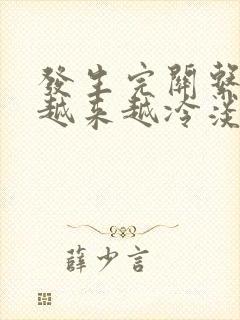 發生完關繫
越來越冷淡
薛少言